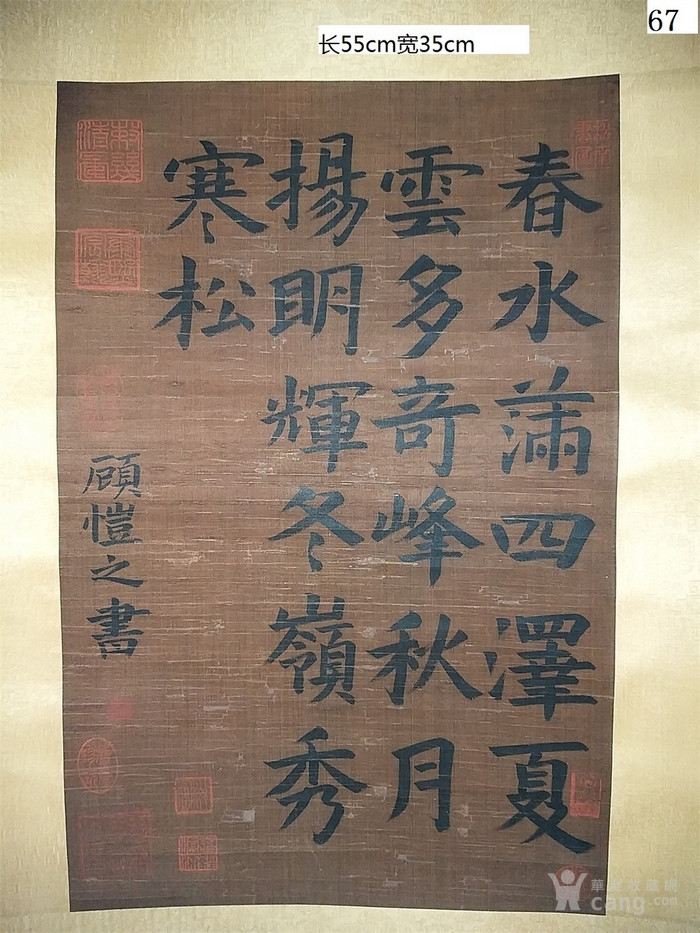 67
长55cm宽35cm
春水满四澤夏
雲多奇峰秋月
揚明輝冬嶺秀
寒松
顧愷之書
華夏收藏網
cang.com